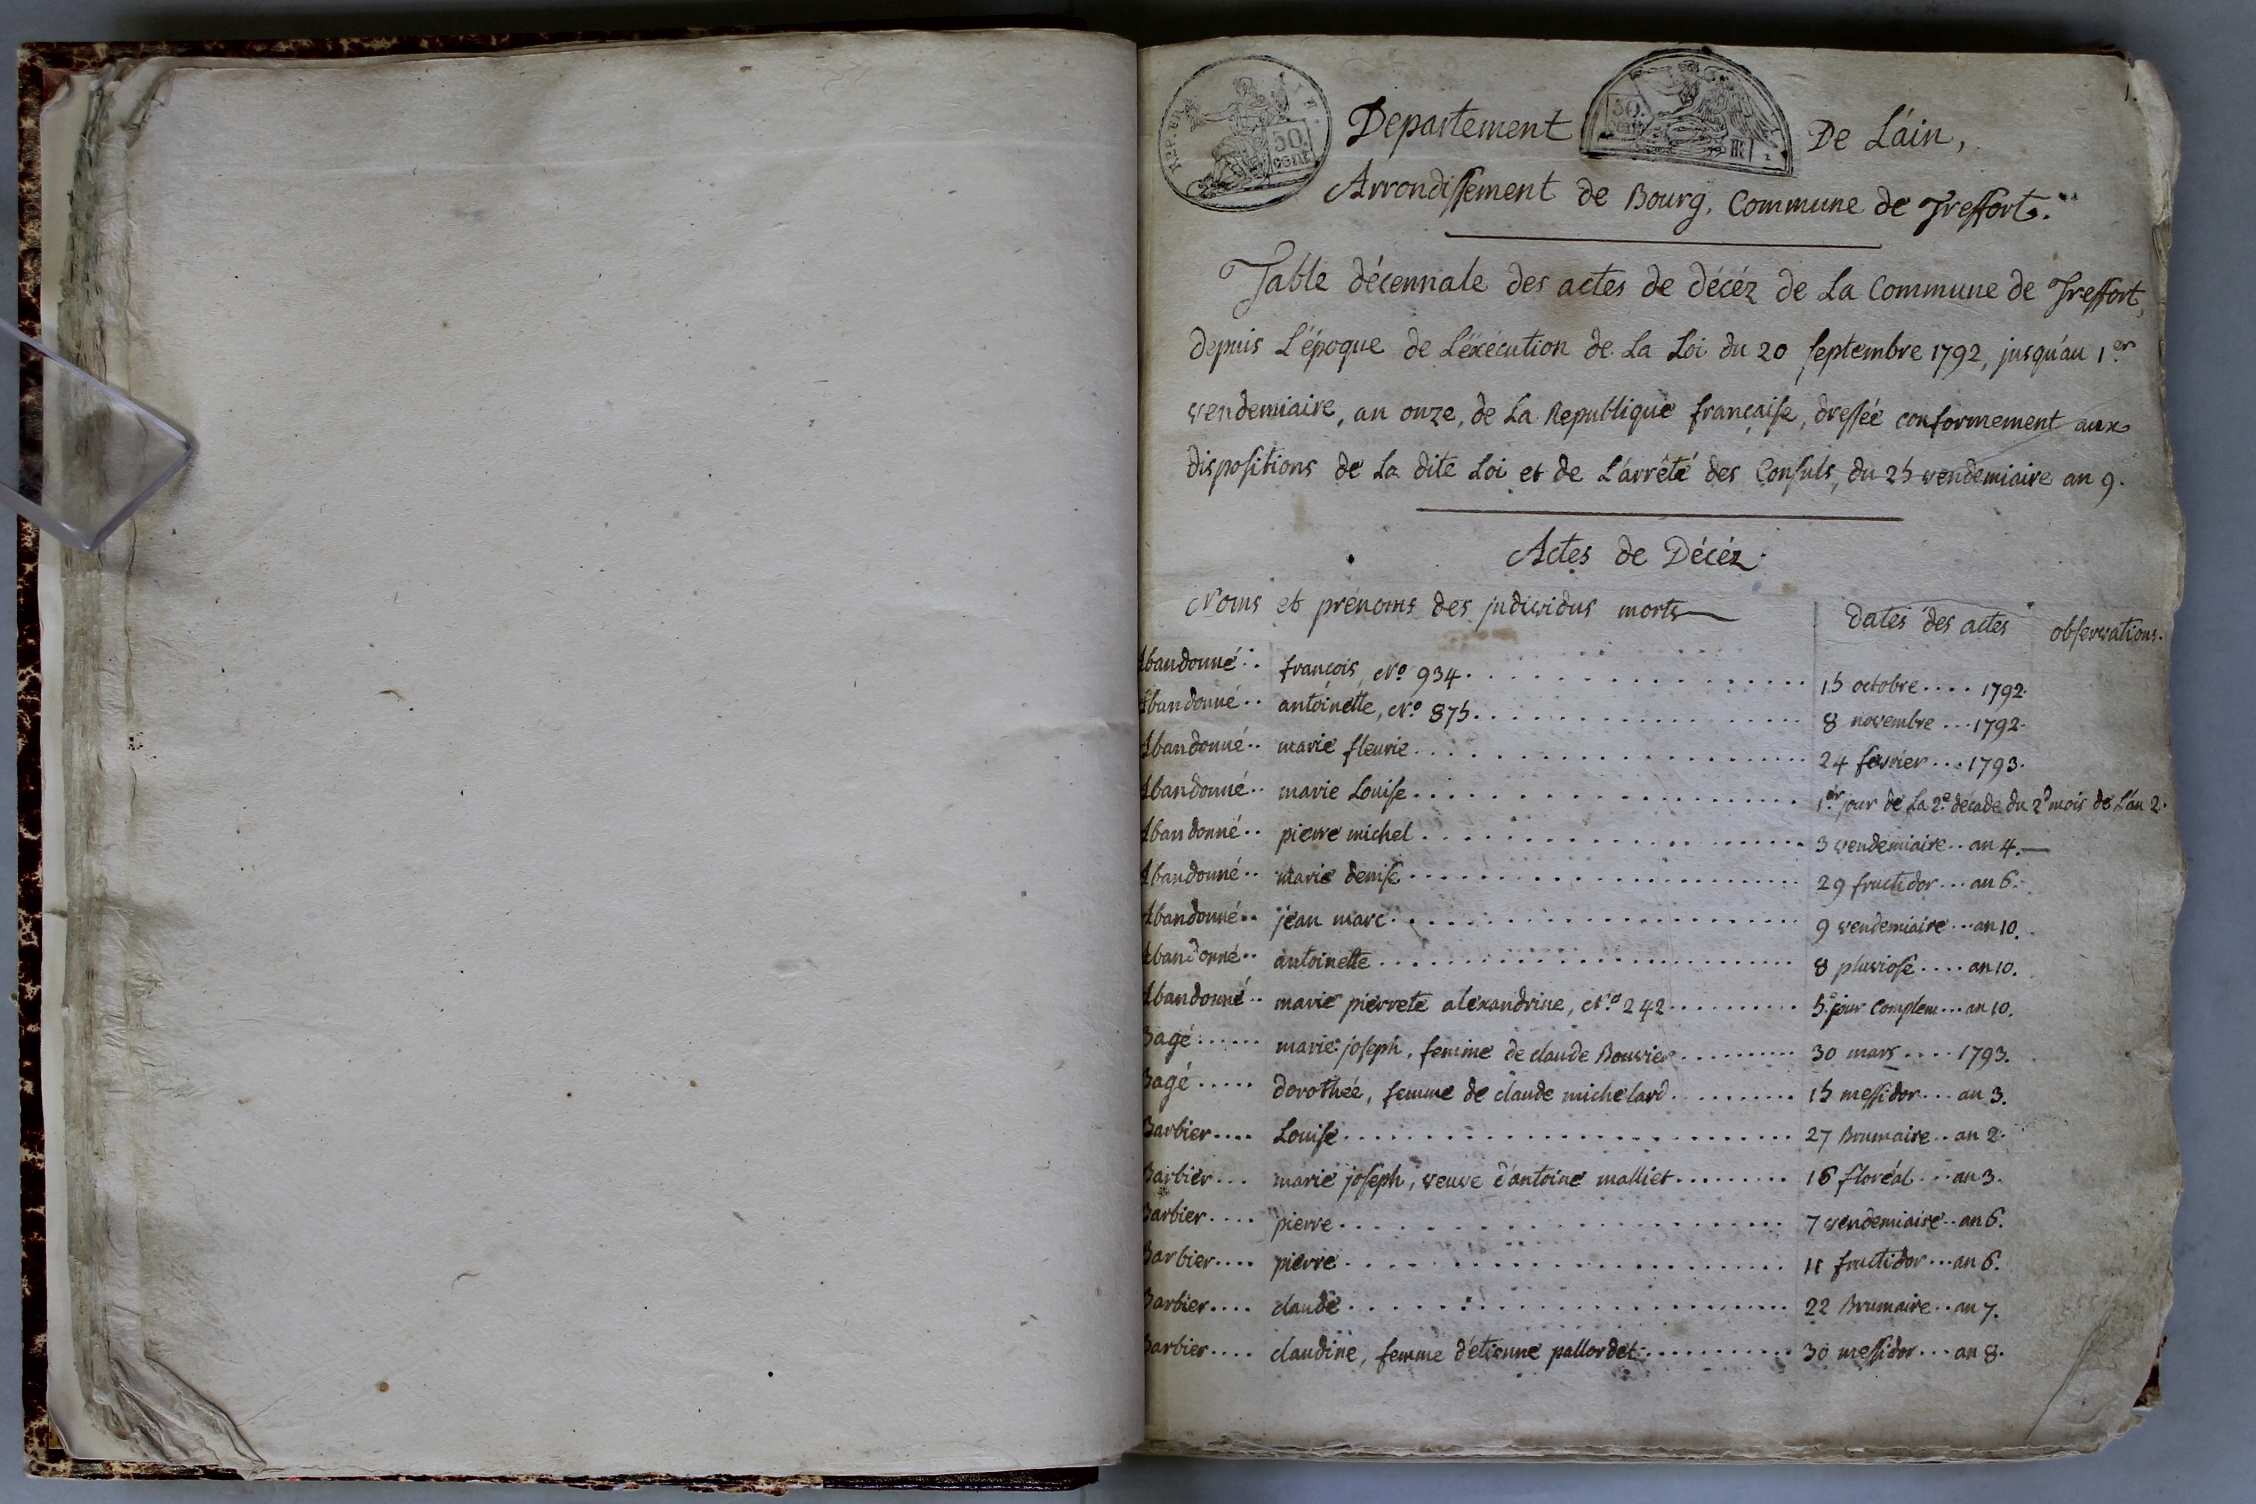 1.
REP. FRA.
50.
cent.
Departement
50.
cent.
De L'ain,
Arrondissement de Bourg, Commune de Treffort.
Table décennale des actes de décéz de La Commune de Treffort,
depuis L'époque de L'éxécution de La Loi du 20 septembre 1792, jusqu'au 1.er
vendemiaire, an onze, de La Republique française, dressée conformement aux
dispositions de La dite Loi et de L'arrêté des Consuls, du 25 vendemiaire an 9.
Actes de Décéz.
Noms et prenoms des individus morts
dates des actes
observations.
Abandonné .. françois, N.o 934 ... 15 octobre .... 1792.
Abandonné .. antoinette, N.o 875 ... 8 novembre ... 1792.
Abandonné .. marie fleurie ... 24 fevrier ... 1793.
Abandonné .. marie Louise ... 1.er jour de La 2.e décade du 2.d mois de L'an 2.
Abandonné .. pierre michel ... 3 vendemiaire .. an 4.
Abandonné .. marie denise ... 29 fructidor ... an 6.
Abandonné .. jean marc ... 9 vendemiaire ... an 10.
Abandonné .. antoinette ... 8 pluviose .... an 10.
Abandonné .. marie pierrete alexandrine, N.o 242 ... 5.e jour Complem ... an 10.
Bagé ...... marie joseph, femme de claude Bouvier ... 30 mars .... 1793.
Bagé ..... dorothée, femme de claude michelard ... 15 messidor ... an 3.
Barbier .... Louise ... 27 Brumaire .. an 2.
Barbier ... marie joseph, veuve d'antoine malliet ... 16 floréal ... an 3.
Barbier .... pierre ... 7 vendemiaire .. an 6.
Barbier .... pierre ... 11 fructidor ... an 6.
Barbier .... claude ... 22 Brumaire .. an 7.
Barbier .... claudine, femme d'étienne pallordet ... 30 messidor ... an 8.